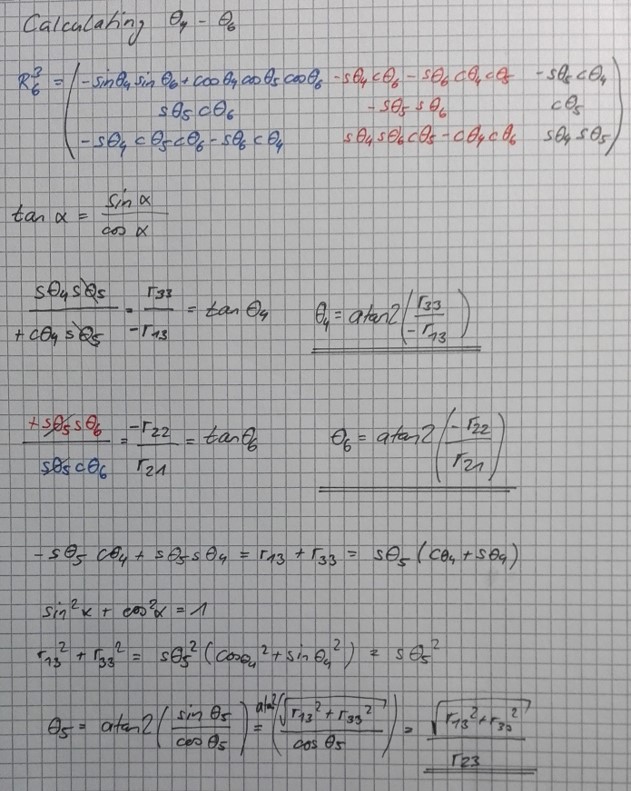 Calculating θ₄ - θ₆
R₆³ = ( -sinθ₄ sinθ₆ + cosθ₄ cosθ₅ cosθ₆   -sθ₄ cθ₆ - sθ₆ cθ₄ cθ₅   -sθ₅ cθ₄
sθ₅ cθ₆   -sθ₅ sθ₆   cθ₅
-sθ₄ cθ₅ cθ₆ - sθ₆ cθ₄   sθ₄ sθ₆ cθ₅ - cθ₄ cθ₆   sθ₄ sθ₅ )
tan α = sin α / cos α
sθ₄ sθ₅ / +cθ₄ sθ₅ = r₃₃ / -r₁₃ = tan θ₄   θ₄ = atan2( r₃₃ / -r₁₃ )
+sθ₅ sθ₆ / sθ₅ cθ₆ = -r₂₂ / r₂₁ = tanθ₆   θ₆ = atan2( -r₂₂ / r₂₁ )
-sθ₅ cθ₄ + sθ₅ sθ₄ = r₁₃ + r₃₃ = sθ₅ (cθ₄ + sθ₄)
sin²x + cos²α = 1
r₁₃² + r₃₃² = sθ₅² (cosθ₄² + sinθ₄²) = sθ₅²
θ₅ = atan2( sin θ₅ / cos θ₅ ) = atan2( √(r₁₃² + r₃₃²) / cos θ₅ ) = √(r₁₃² + r₃₃²) / r₂₃